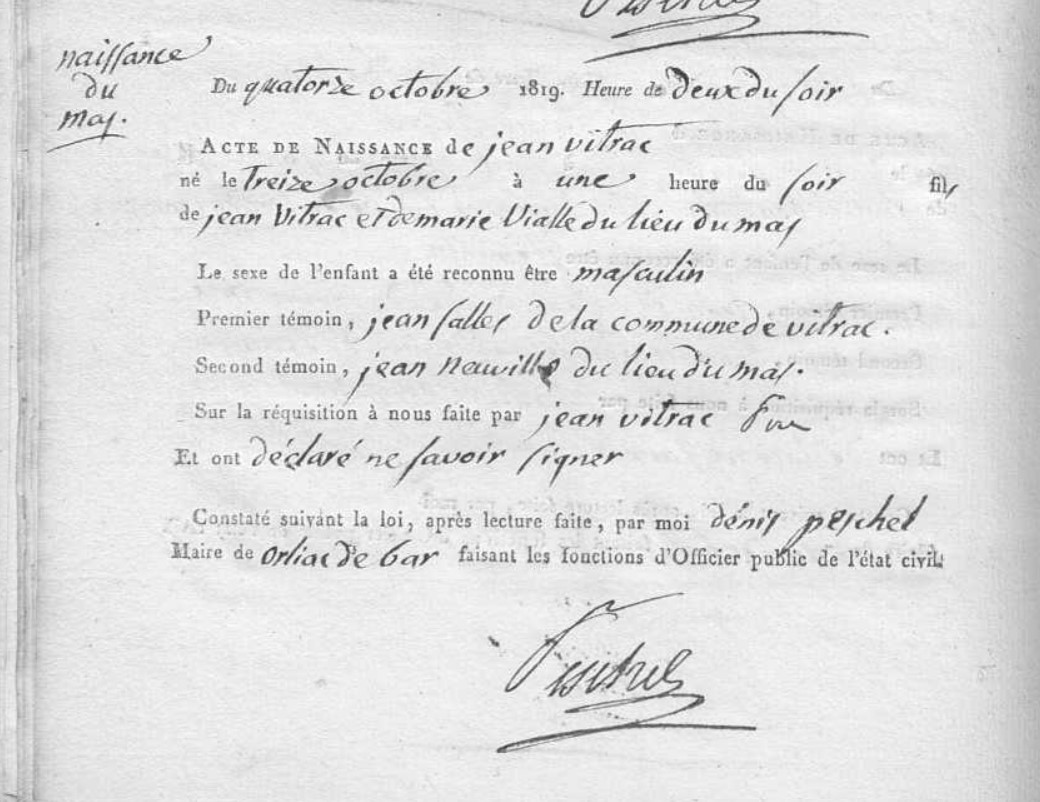 naissance
du
mas.
Du quatorze octobre 1819. Heure de deux du soir
ACTE DE NAISSANCE de jean vitrac
né le treize octobre à une heure du soir fils
de jean vitrac et de marie vialle du lieu du mas
Le sexe de l'enfant a été reconnu être masculin
Premier témoin, jean salles de la commune de vitrac.
Second témoin, jean neuville du lieu du mas.
Sur la réquisition à nous faite par jean vitrac
Et ont déclaré ne savoir signer
Constaté suivant la loi, après lecture faite, par moi dénis peschel
Maire de orliac de bar faisant les fonctions d'Officier public de l'état civil.